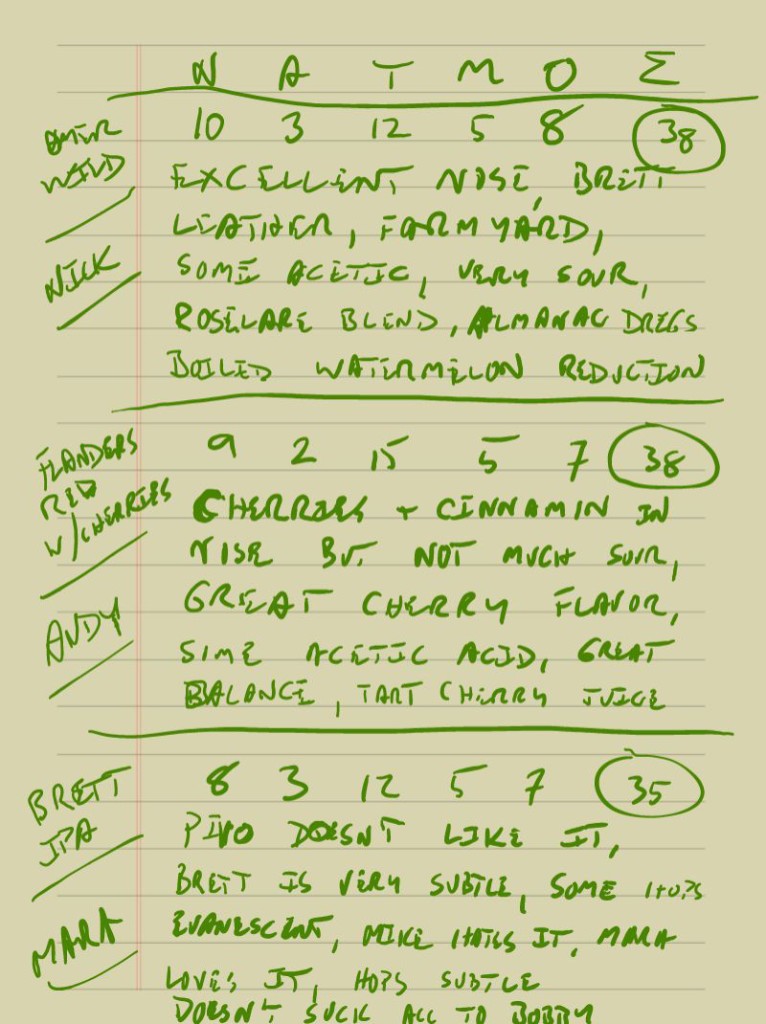 N A T M O Σ
10 3 12 5 8 38
WILD
NICK
EXCELLENT NOSE, BRETT
LEATHER, FARMYARD,
SOME ACETIC, VERY SOUR,
ROSELARE BLEND, ALMANAC DREGS
BOILED WATERMELON REDUCTION
FLANDERS
RED
W/CHERRIES
ANDY
9 2 15 5 7 38
CHERRIES + CINNAMIN IN
NOSE BUT NOT MUCH SOUR,
GREAT CHERRY FLAVOR,
SOME ACETIC ACID, GREAT
BALANCE, TART CHERRY JUICE
BRETT
IPA
MARA
8 3 12 5 7 35
PIVO DOESN'T LIKE IT,
BRETT IS VERY SUBTLE, SOME HOPS
EVANESCENT, MIKE HATES IT, MARA
LOVES IT, HOPS SUBTLE
DOESN'T SUCK ACC TO BOBBY